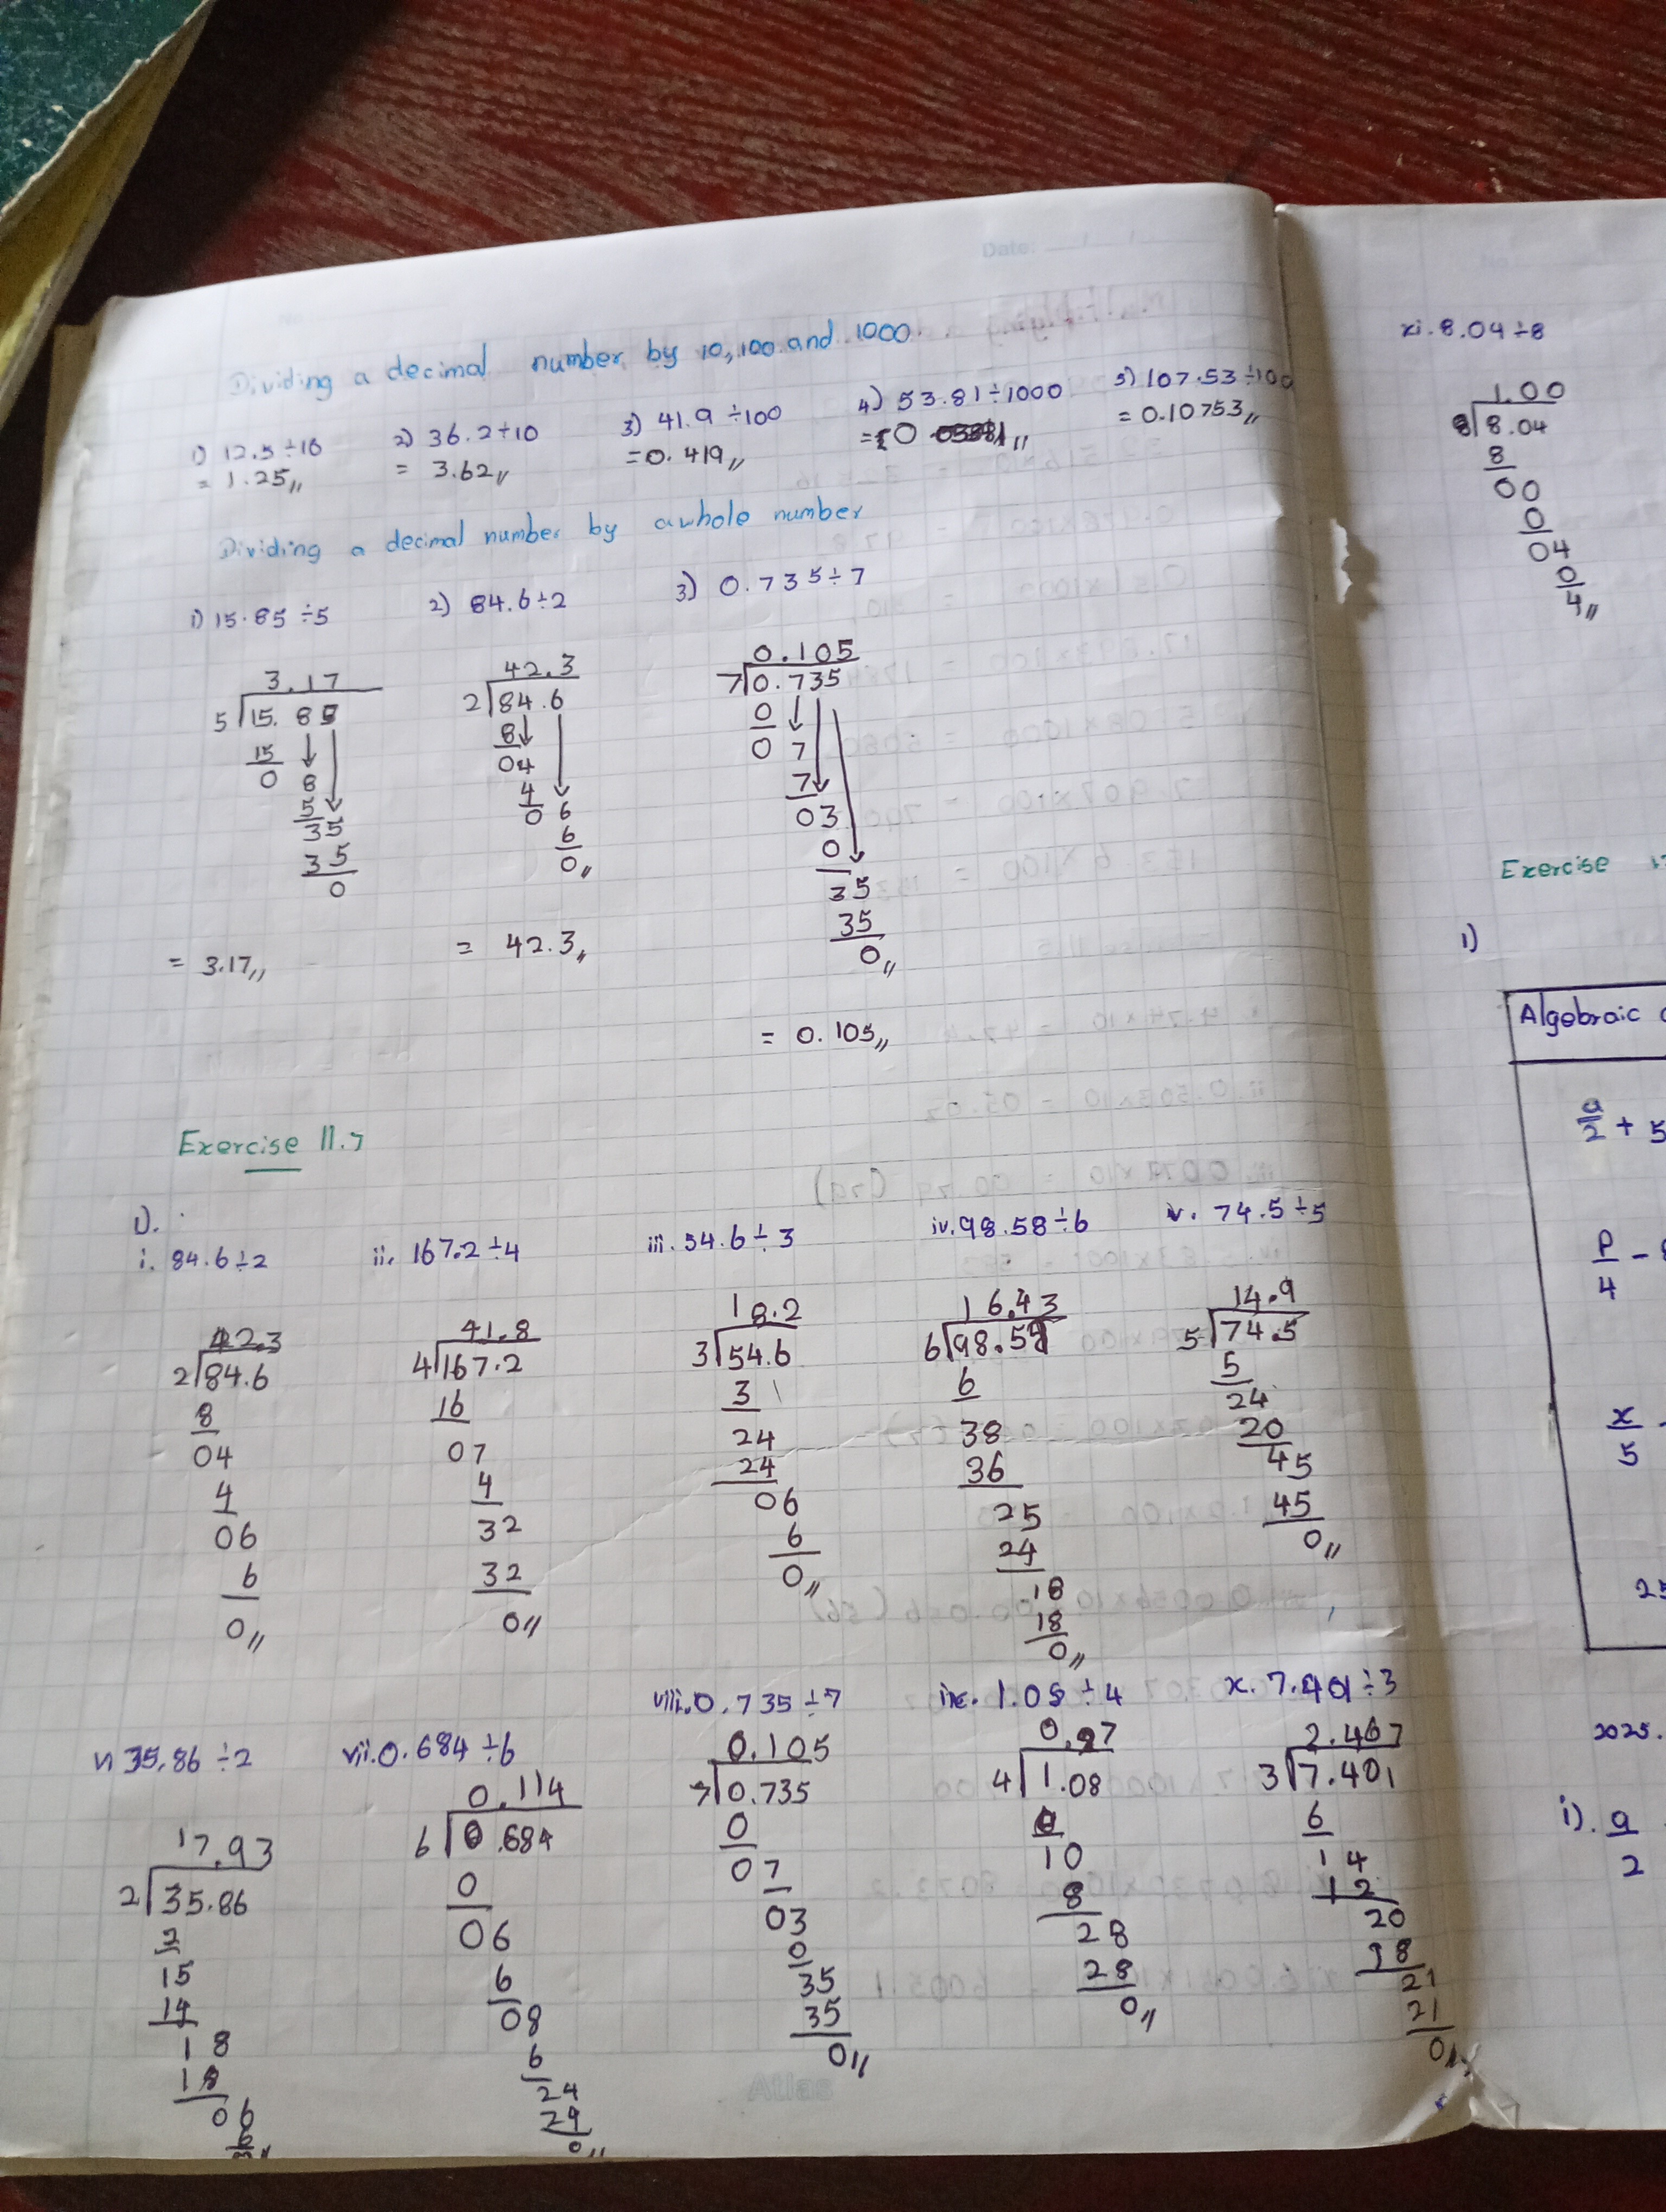 Date:
Dividing a decimal number by 10, 100 and 1000.
1) 12.5÷10
= 1.25
2) 36.2÷10
= 3.62
3) 41.9 ÷100
=0.419
4) 53.81÷1000
5) 107.53÷100
= 0.10753
Dividing a decimal number by a whole number
1) 15.85 ÷5
3.17
5 15.85
15
0 8
5
35
35
0
= 3.17
2) 84.6÷2
42.3
2 84.6
8
04
4
0 6
6
0
= 42.3
3) 0.735÷7
0.105
7 0.735
0
0 7
7
03
0
35
35
0
= 0.105
Exercise 11.7
1).
i. 84.6÷2
42.3
2 84.6
8
04
4
06
6
0
ii. 167.2÷4
41.8
4 167.2
16
07
4
32
32
0
iii. 54.6÷3
18.2
3 54.6
3
24
24
06
6
0
iv. 98.58÷6
16.43
6 98.58
6
38
36
25
24
18
18
0
v. 74.5÷5
14.9
5 74.5
5
24
20
45
45
0
vi 35.86 ÷2
17.93
2 35.86
2
15
14
18
18
06
6
vii. 0.684÷6
0.114
6 0.684
0
06
6
08
6
24
24
0
viii. 0.735÷7
0.105
7 0.735
0
07
03
0
35
35
0
ix. 1.08÷4
4 1.08
0
10
8
28
28
0
x. 7.401÷3
2.467
3 7.401
6
14
12
20
18
21
21
0
Atlas
xi. 8.04÷8
1.00
8 8.04
8
00
0
04
0
4
Exercise
1)
Algebraic
a/2 + 5
p/4 -
x/5
25
2025.
i). a/2